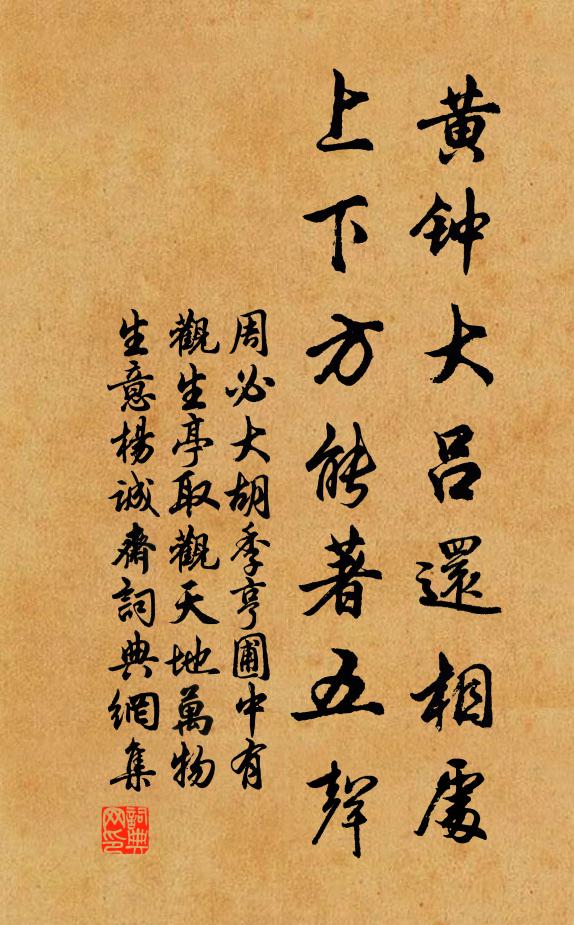 黄钟大吕還相處
上下方能著五聲
周必大胡季亨圃中有
觀生亭取觀天地萬物
生意楊誠齋詞典網集
詞典
网印